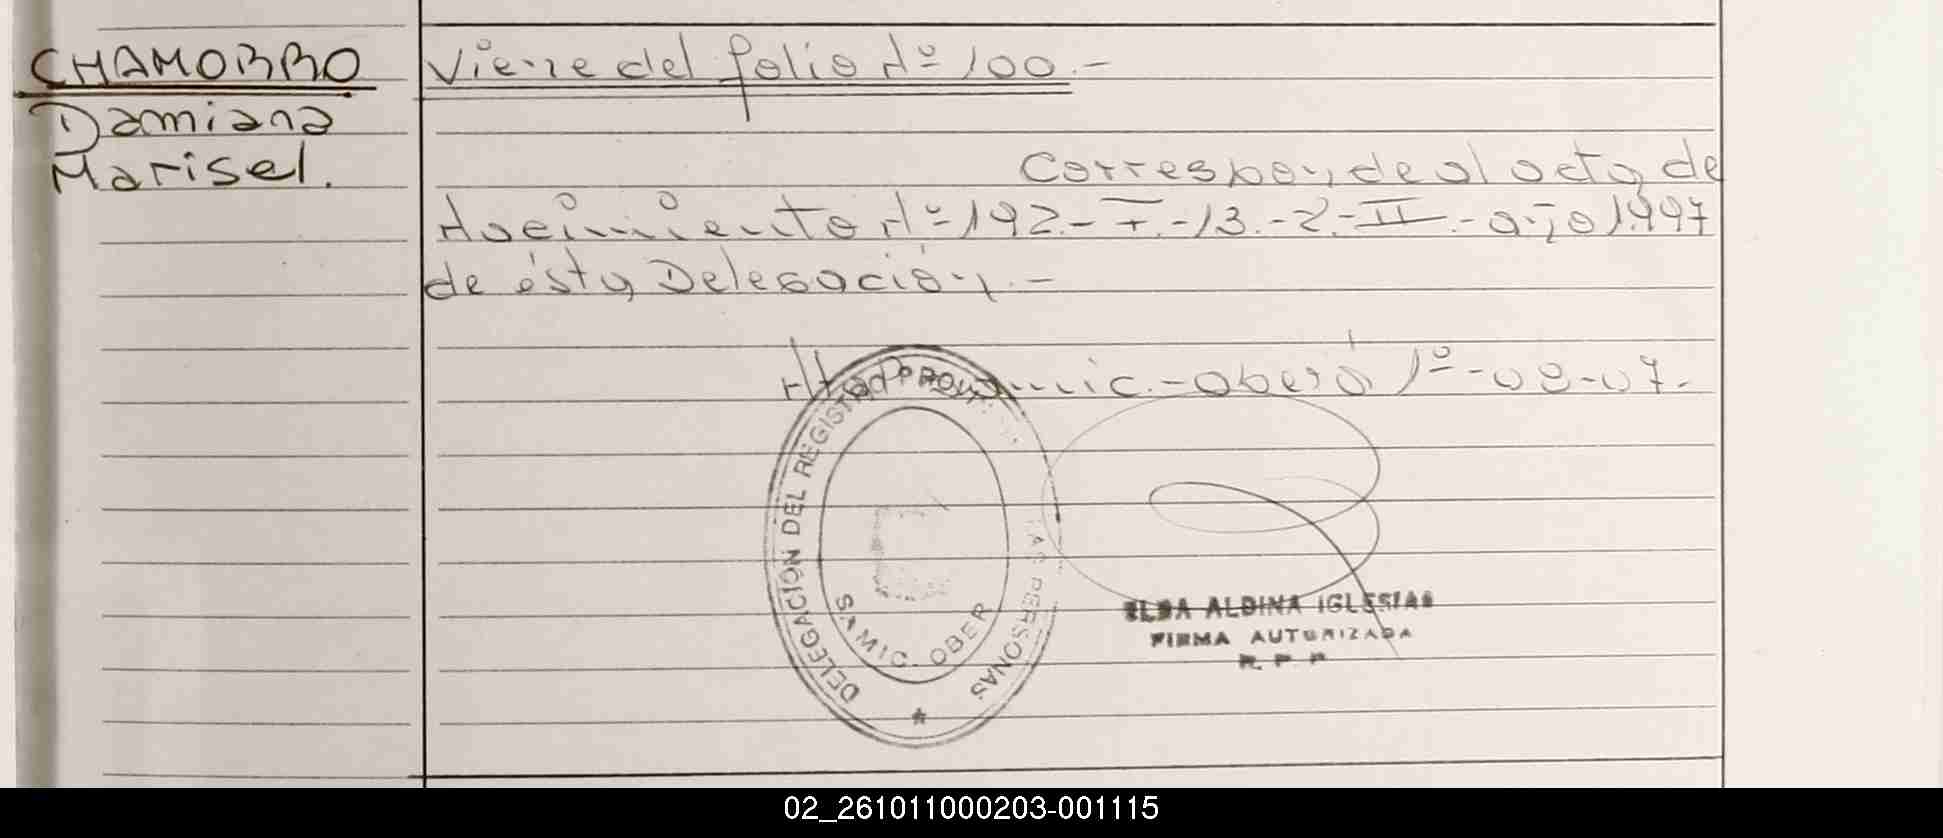 CHAMORRO
Damiana
Marisel.
Viene del folio Nº 100.-
Corresponde al acta de
Nacimiento Nº 192.-I.-13.-2.-II.-año 1.997
de ésta Delegación.-
Samic.-Oberá 1º-08-07.-
DELEGACIÓN DEL REGISTRO PROV. LAS PERSONAS
SAMIC. OBER
ELBA ALDINA IGLESIAS
FIRMA AUTORIZADA
R. P. P
02_261011000203-001115